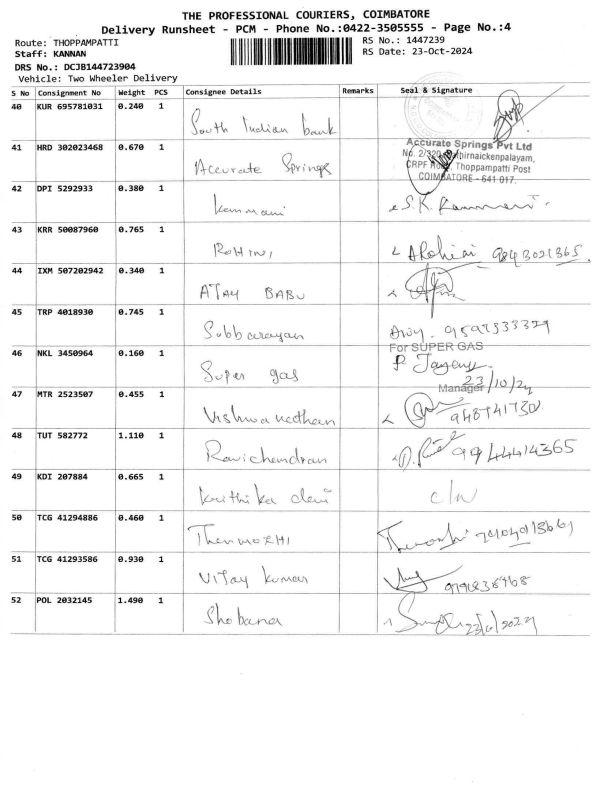 THE PROFESSIONAL COURIERS, COIMBATORE
Delivery Runsheet - PCM - Phone No.:0422-3505555 - Page No.:4
Route: THOPPAMPATTI
RS No.: 1447239
Staff: KANNAN
RS Date: 23-Oct-2024
DRS No.: DCJB144723904
Vehicle: Two Wheeler Delivery
S No Consignment No Weight PCS Consignee Details Remarks Seal & Signature
40 KUR 695781031 0.240 1
South Indian bank
41 HRD 302023468 0.670 1
Accurate Springs Pvt Ltd
No. 2/320
CRPF Thoppampatti Post
COIMBATORE - 641 017.
Accurate Springs
42 DPI 5292933 0.380 1
Kanmani S.K.
43 KRR 50087960 0.765 1
ROHINI 9843021365.
44 IXM 507202942 0.340 1
AJAY BABU
45 TRP 4018930 0.745 1
Subbarayan
For SUPER GAS
46 NKL 3450964 0.160 1
Super gas
23/10/24
Manager
47 MTR 2523507 0.455 1
Vishwanathan
48 TUT 582772 1.110 1
Ravichandran 9944414365
49 KDI 207884 0.665 1
Krithika devi
50 TCG 41294886 0.460 1
51 TCG 41293586 0.930 1
Vijay kumar
52 POL 2032145 1.490 1
Shobana